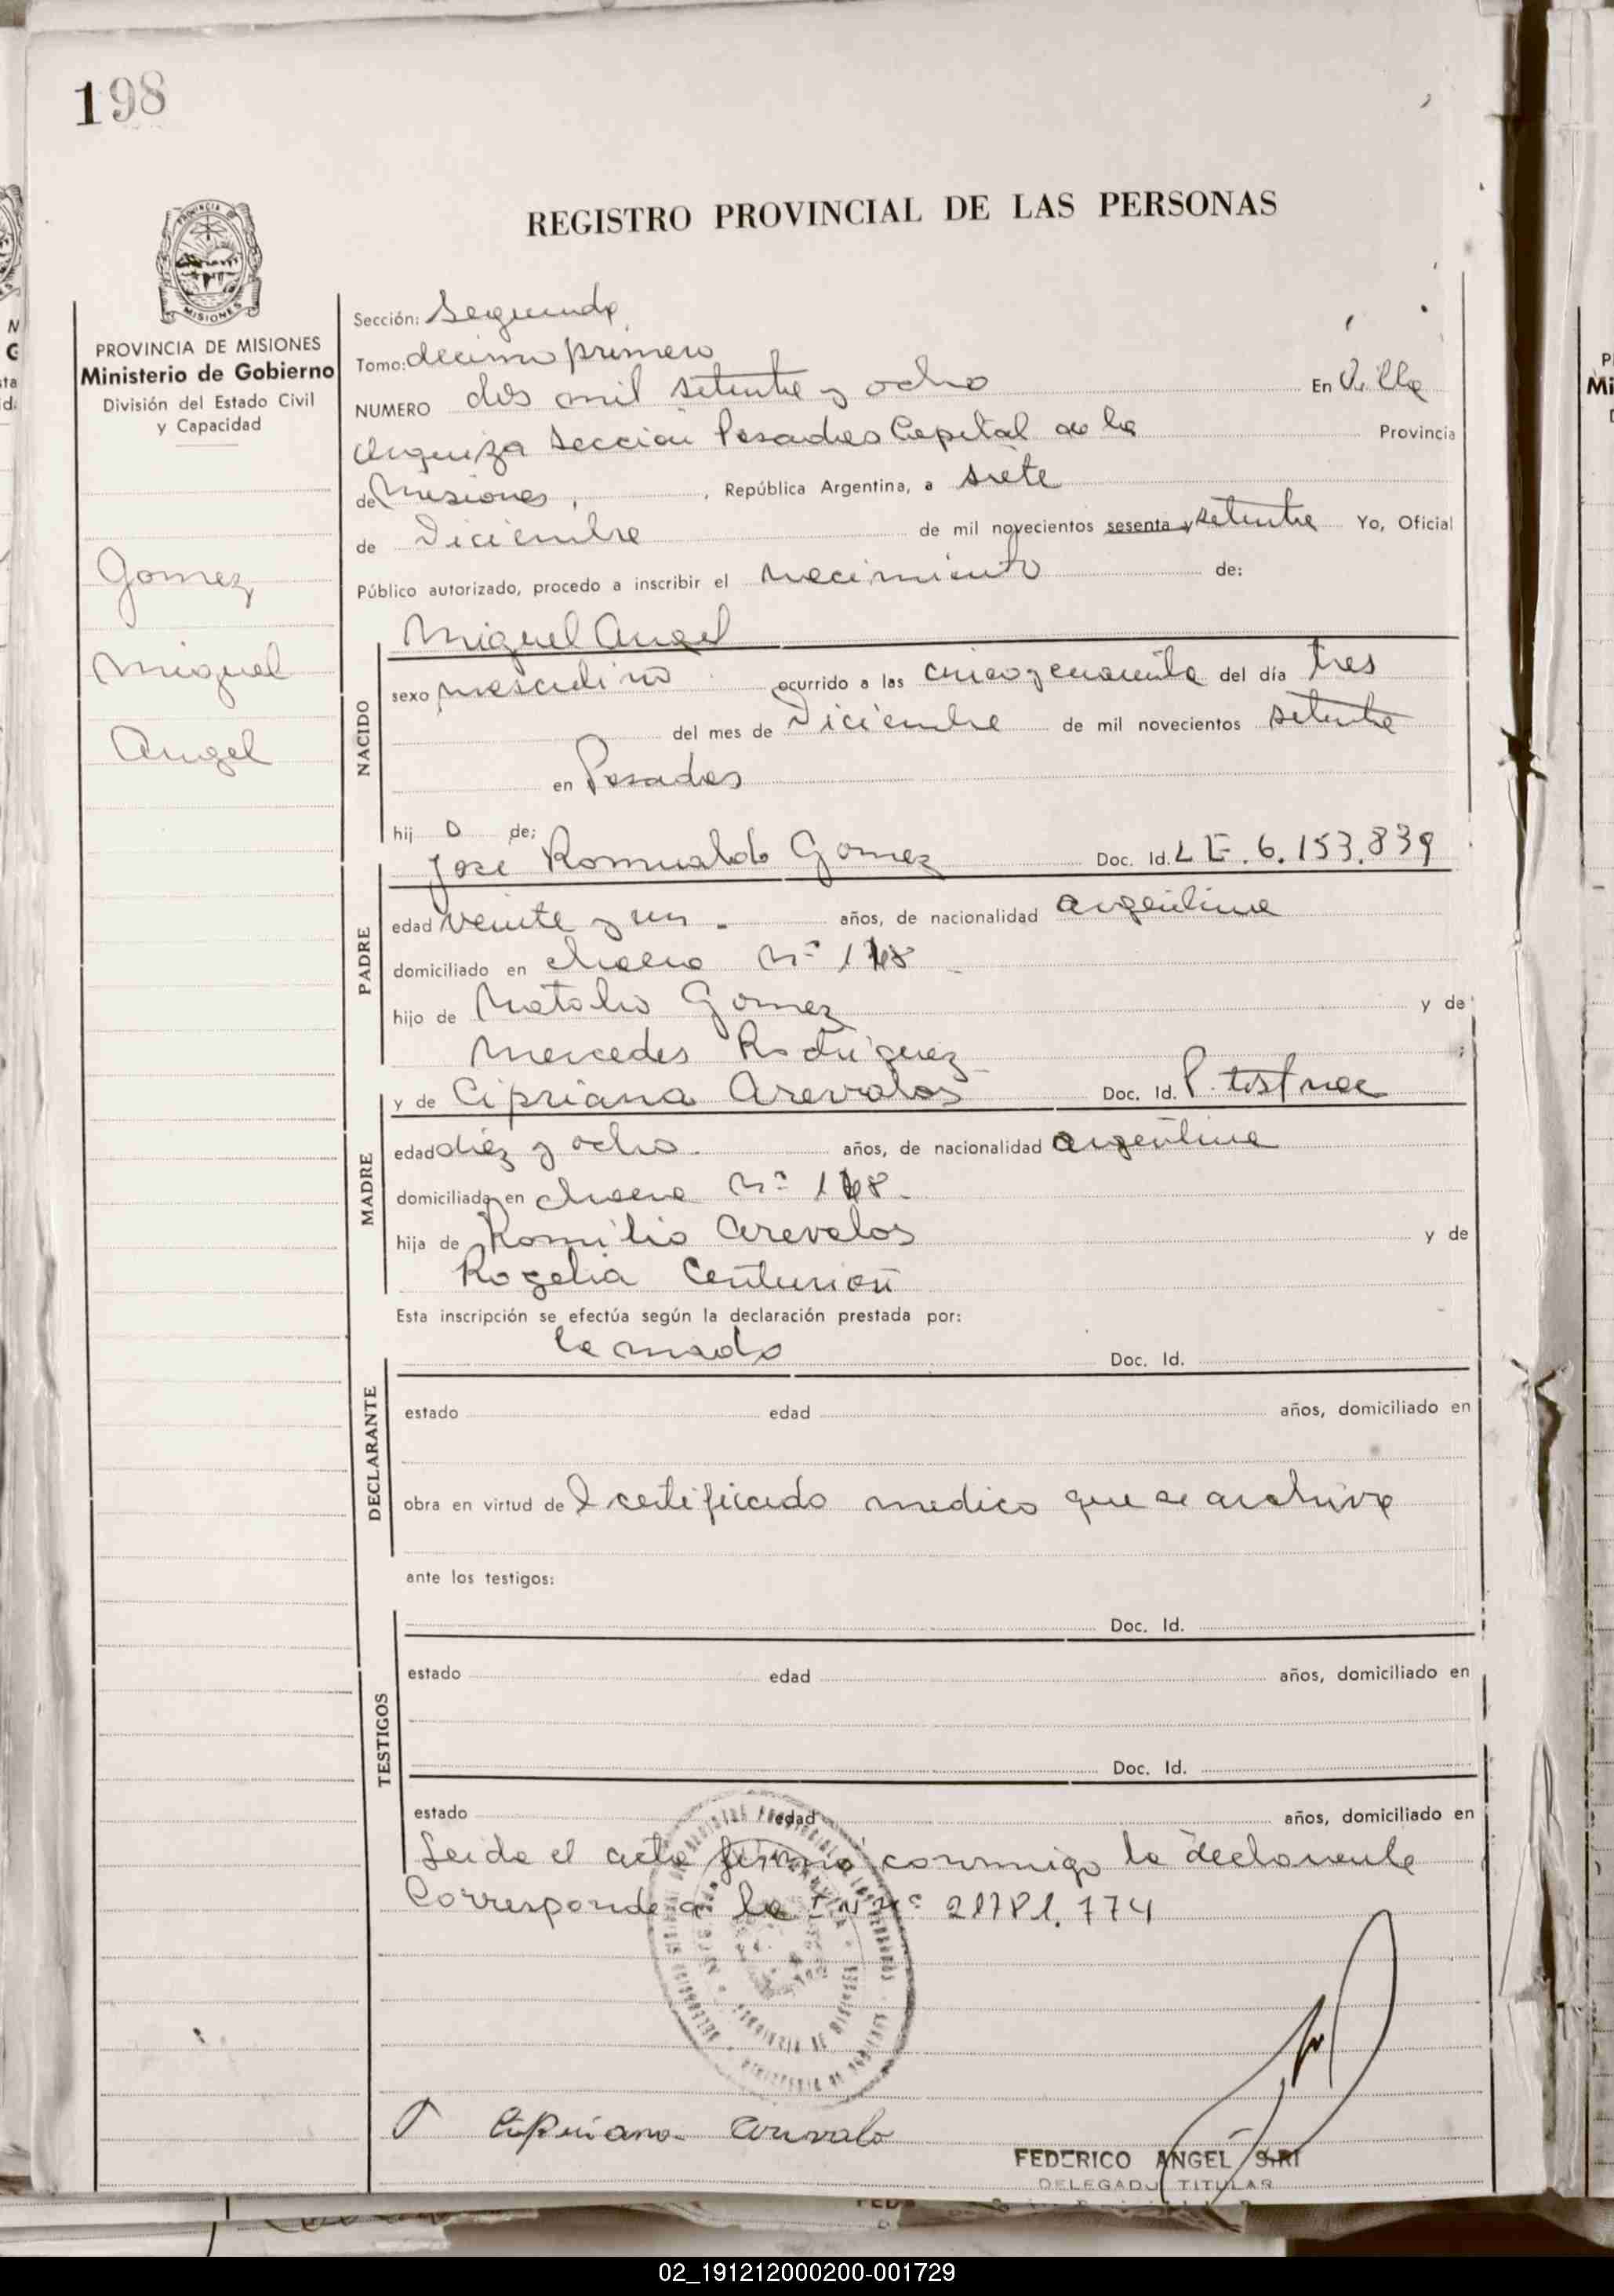 198
REGISTRO PROVINCIAL DE LAS PERSONAS
PROVINCIA DE MISIONES
Ministerio de Gobierno
División del Estado Civil
y Capacidad
Gomez
Miguel
Angel
Sección: Segunda
Tomo: decimo primero
NUMERO dos mil setenta y ocho En Villa
Urquiza Sección Posadas Capital de la Provincia
de Misiones, , República Argentina, a siete
de Diciembre de mil novecientos sesenta y setenta Yo, Oficial
Público autorizado, procedo a inscribir el nacimiento de:
Miguel Angel
NACIDO
sexo masculino ocurrido a las cinco y cuarenta del día tres
del mes de Diciembre de mil novecientos setenta
en Posadas
hijo de:
José Romualdo Gomez Doc. Id. L E. 6.153.839
PADRE
edad veinte y un años, de nacionalidad argentina
domiciliado en chacra Nº
hijo de Natalio Gomez y de
Mercedes Rodriguez
y de Cipriana Arevalos Doc. Id.
MADRE
edad diez y ocho años, de nacionalidad argentina
domiciliada en chacra Nº
hija de Romilio Arevalos y de
Rogelia Centurion
Esta inscripción se efectúa según la declaración prestada por:
la madre Doc. Id.
DECLARANTE
estado edad años, domiciliado en
obra en virtud de l certificado medico que se archiva
ante los testigos:
Doc. Id.
TESTIGOS
estado edad años, domiciliado en
Doc. Id.
estado edad años, domiciliado en
Leida el acta firma conmigo la declarante
Corresponde a la Nº 21781.774
Cipriana Arevalo
FEDERICO ANGEL SIRI
DELEGADO TITULAR
02_191212000200-001729